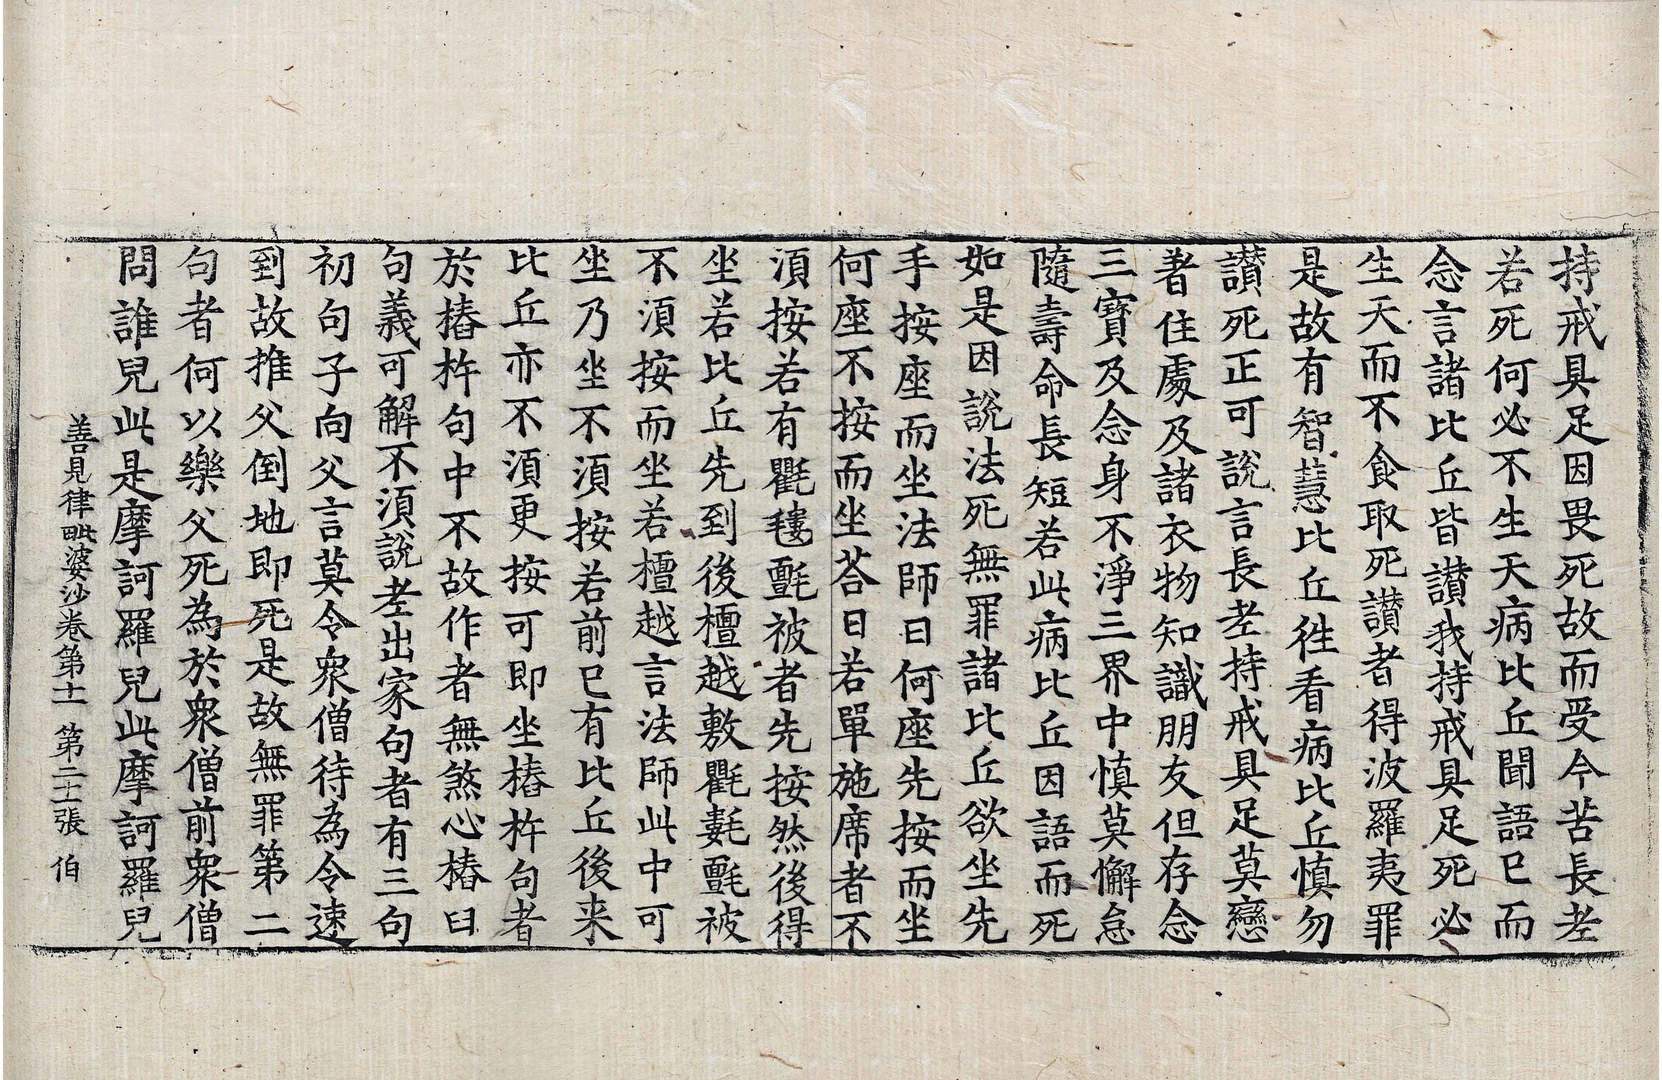 持戒具足因畏死故而受今苦長老
若死何必不生天病比丘聞語已而
念言諸比丘皆讃我持戒具足死必
生天而不食取死讃者得波羅夷罪
是故有智慧比丘徃看病比丘慎勿
讃死正可說言長老持戒具足莫戀
著住處及諸衣物知識朋友但存念
三寶及念身不淨三界中慎莫懈怠
隨壽命長短若此病比丘因語而死
如是因說法死無罪諸比丘欲坐先
手按座而坐法師曰何座先按而坐
何座不按而坐荅曰若單施席者不
湏按若有氍氀氎被者先按然後得
坐若比丘先到後檀越敷氍㲣氎被
不湏按而坐若檀越言法師此中可
坐乃坐不湏按若前已有比丘後来
比丘亦不湏更按可即坐樁杵句者
於樁杵句中不故作者無煞心樁臼
句義可解不湏說老出家句者有三句
初句子向父言莫令衆僧待為令速
到故推父倒地即死是故無罪第二
句者何以樂父死為於衆僧前衆僧
問誰兒此是摩訶羅兒此摩訶羅兒
善見律毗婆沙卷第十一 第二十張 伯